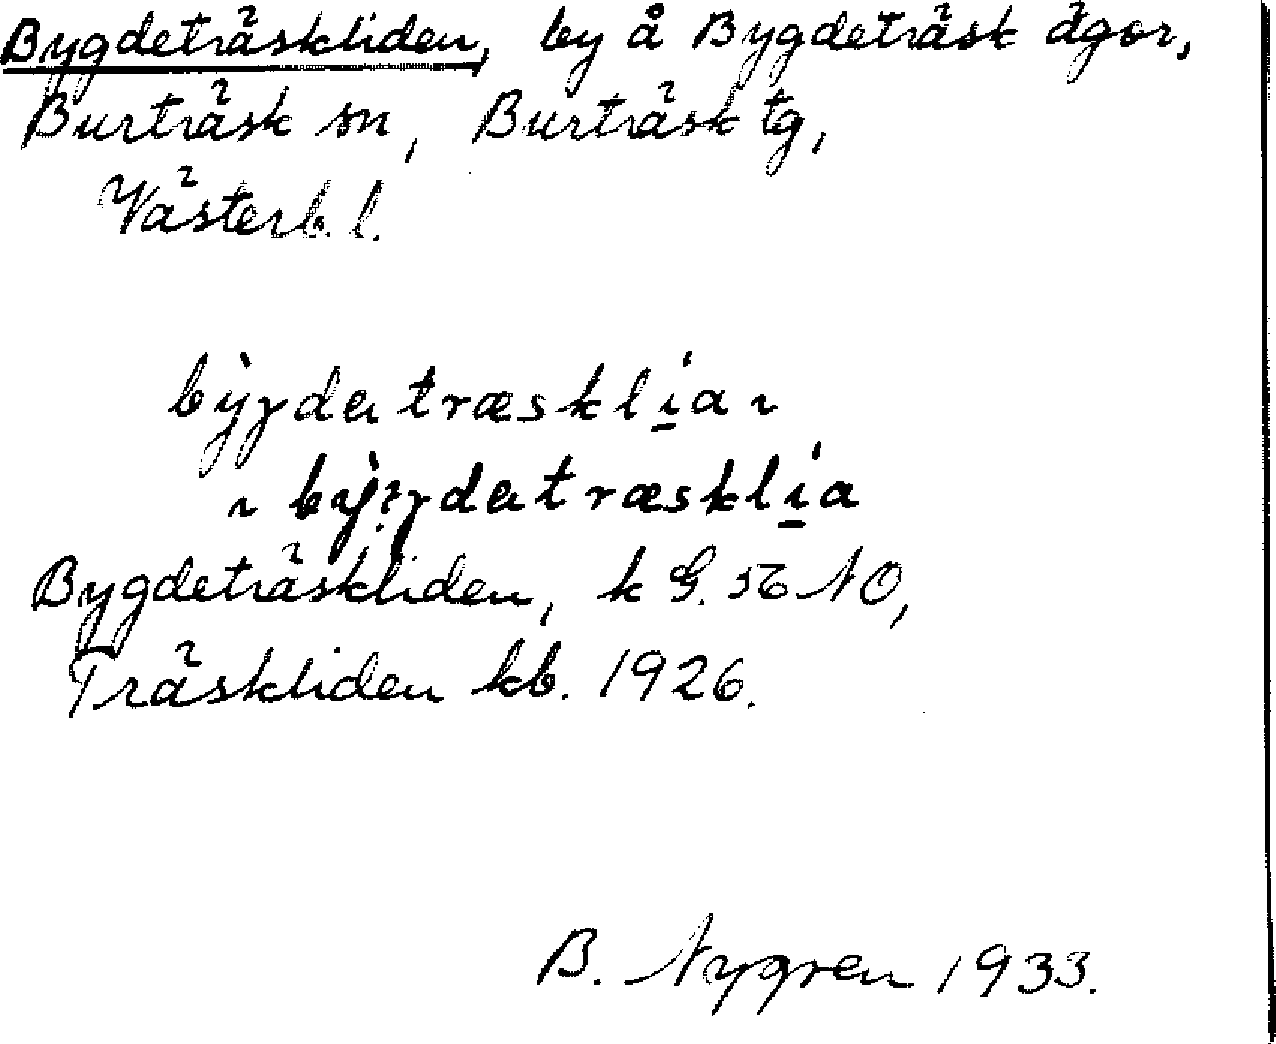 Bygdeträskliden, by å Bygdeträsk ägor,
Burträsk sn, Burträsk tg,
Västerb. l.
bỳgdatræsklia ~
~ bỳ:gdatræsklia
Bygdeträskliden, k G. 56 NO,
Träskliden kb. 1926.
B. Nygren 1933.